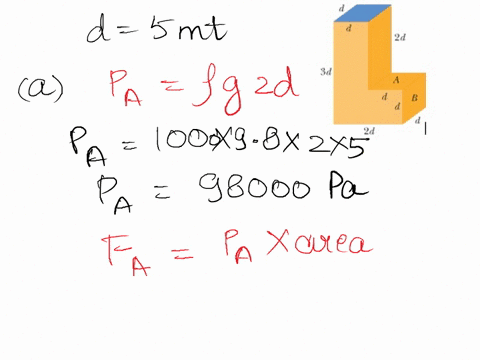 d = 5 mt
(a) P_A = ρg2d
P_A = 1000×9.8×2×5
P_A = 98000 Pa
F_A = P_A × area
d
d
2d
3d
A
d
d
B
2d
d